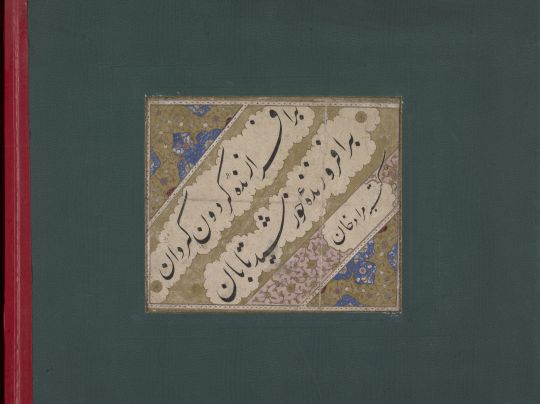 برافرازندهٔ گردون گردان
برافروزندهٔ خورشید تابان
کتبه مرادخان